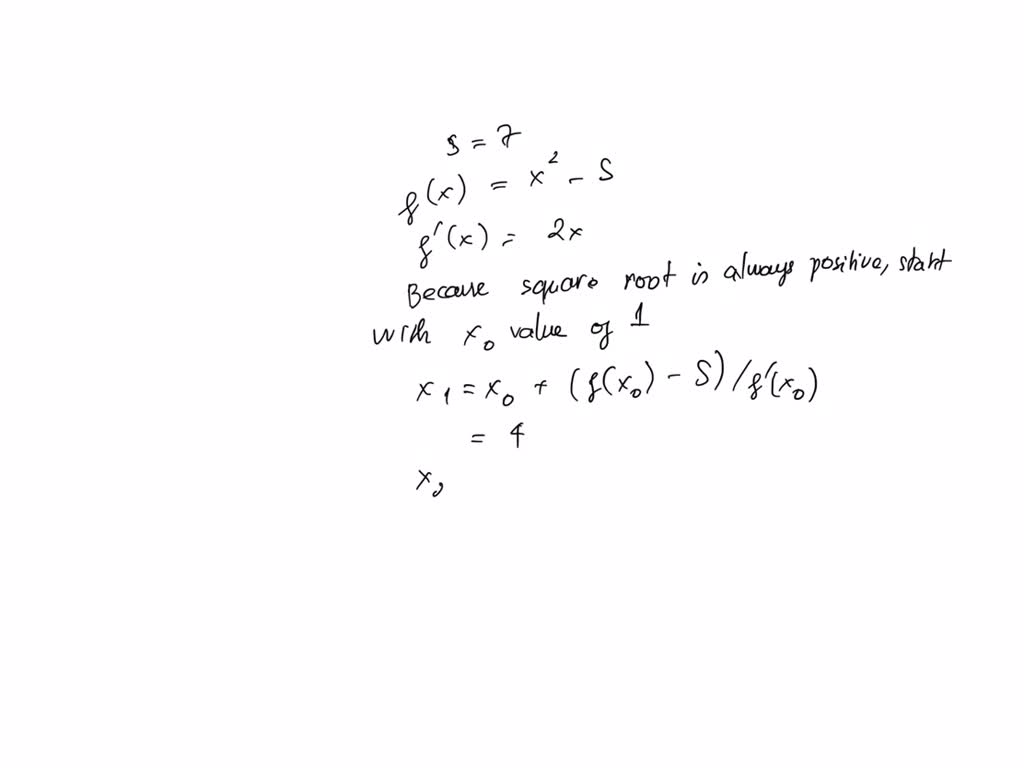 s = 7
f(x) = x² - S
f'(x) = 2x
Because square root is always positive, start
with x₀ value of 1
x₁ = x₀ + (f(x₀) - S) / f'(x₀)
= 4
x₂